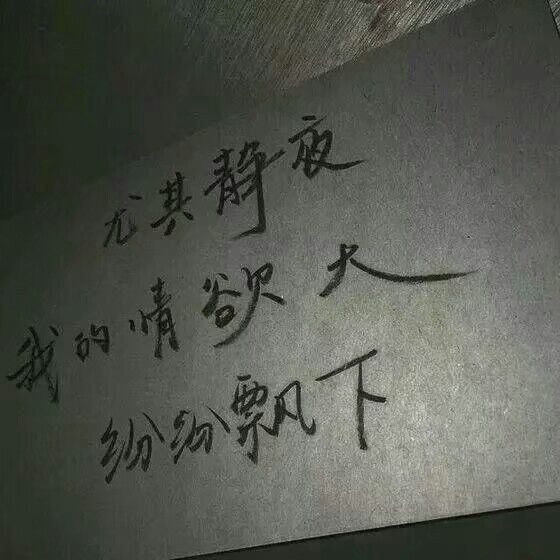 尤其静夜
我的情欲大
纷纷飘下